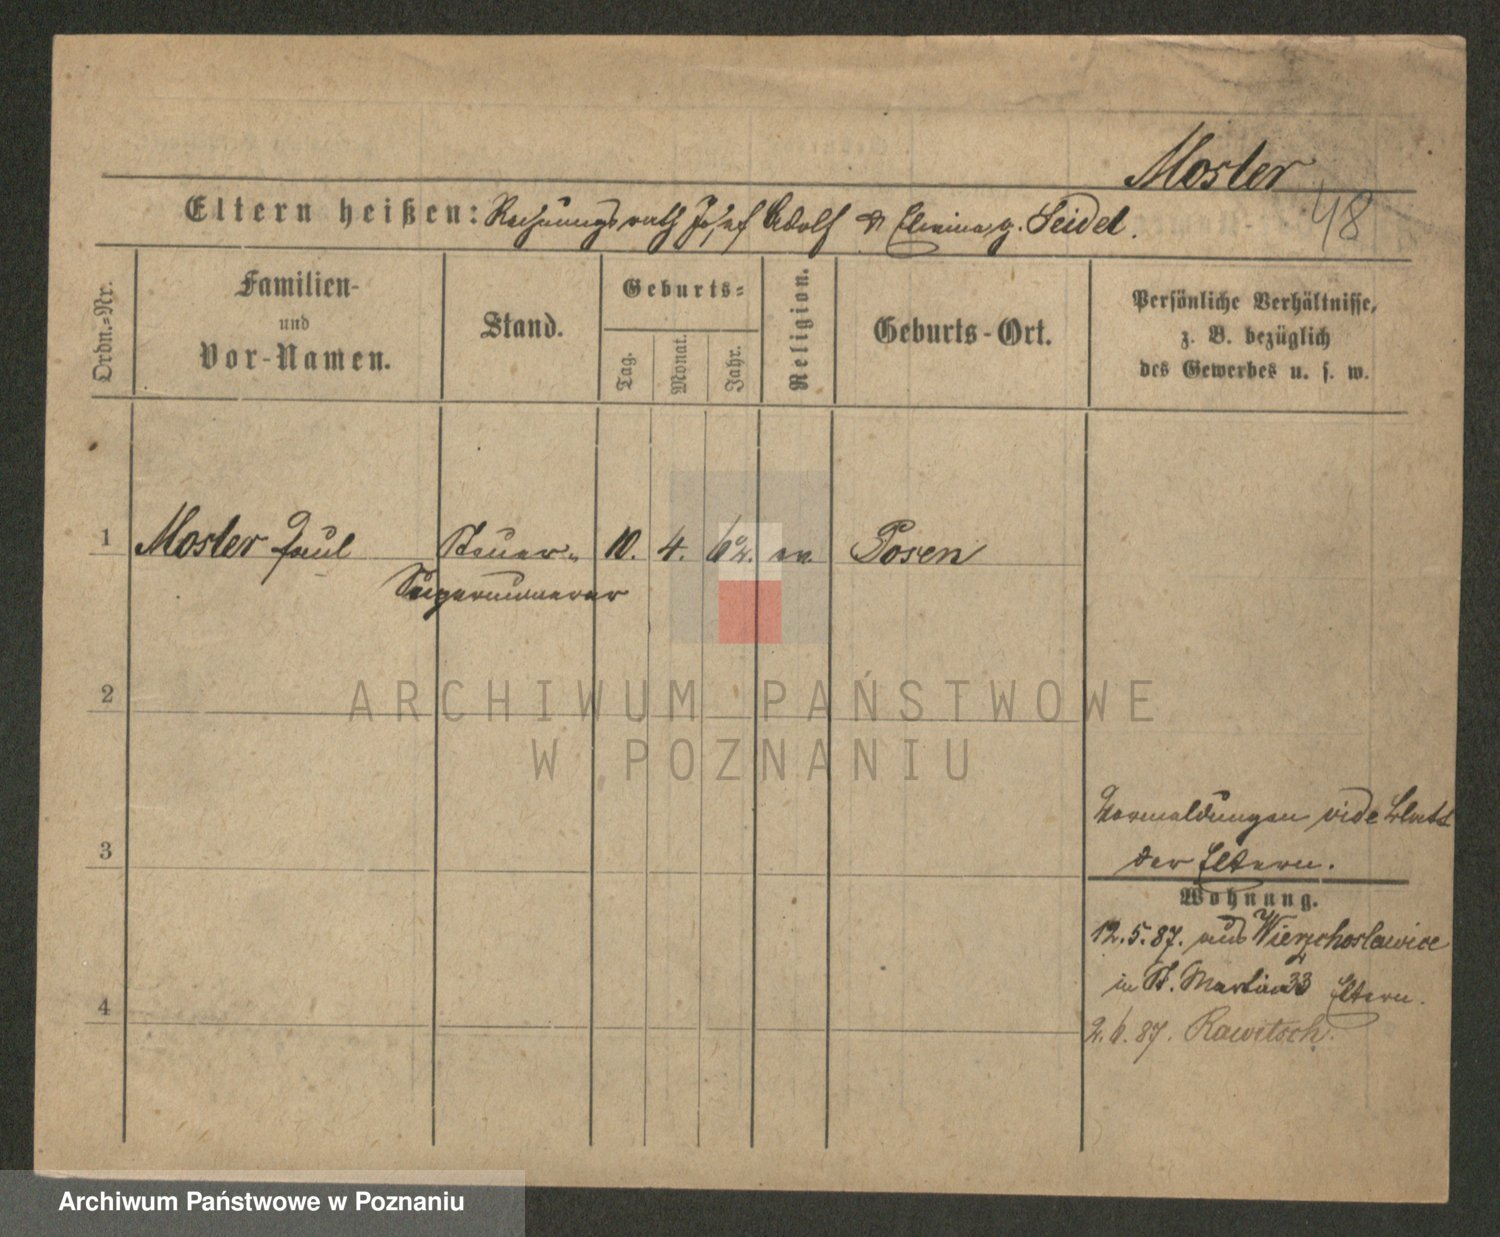 Mosler
48
Eltern heißen: Rechnungsrath Josef Adolf & Elwina g. Seidel.
Ordn.-Nr.
Familien-
und
Vor-Namen.
Stand.
Geburts-
Tag.
Monat.
Jahr.
Religion.
Geburts-Ort.
Persönliche Verhältnisse,
z. B. bezüglich
des Gewerbes u. s. w.
1 Mosler Paul Steuer- 10. 4. 62. ev. Posen
Supernumerar
2
ARCHIWUM PAŃSTWOWE
W POZNANIU
3
Vermeldungen vide Blatt
der Eltern.
Wohnung.
12.5.87. aus Wierzchoslawice
in St. Martin 33 Eltern.
4
2.6.87. Rawitsch.
Archiwum Państwowe w Poznaniu